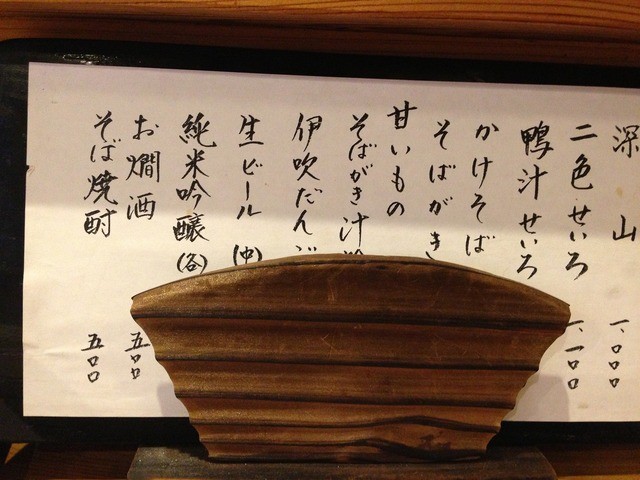 深山 一、〇〇〇
二色せいろ 一、一〇〇
鴨汁せいろ
かけそば
そばがき
甘いもの
そばがき汁
伊吹だんご
生ビール(中)
純米吟醸(各)
お燗酒 五〇〇
そば焼酎 五〇〇